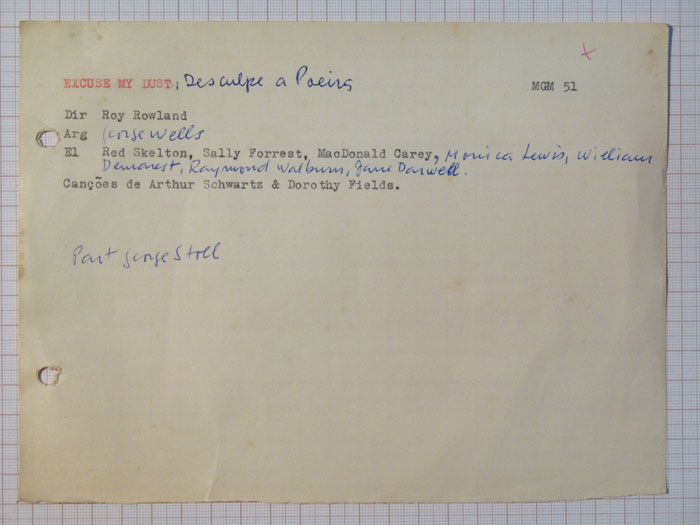 EXCUSE MY DUST; Desculpe a Poeira MGM 51
Dir Roy Rowland
Arg George Wells
El Red Skelton, Sally Forrest, MacDonald Carey, Monica Lewis, William
Demarest, Raymond Walburn, Jane Darwell.
Canções de Arthur Schwartz & Dorothy Fields.
Part George Stoll